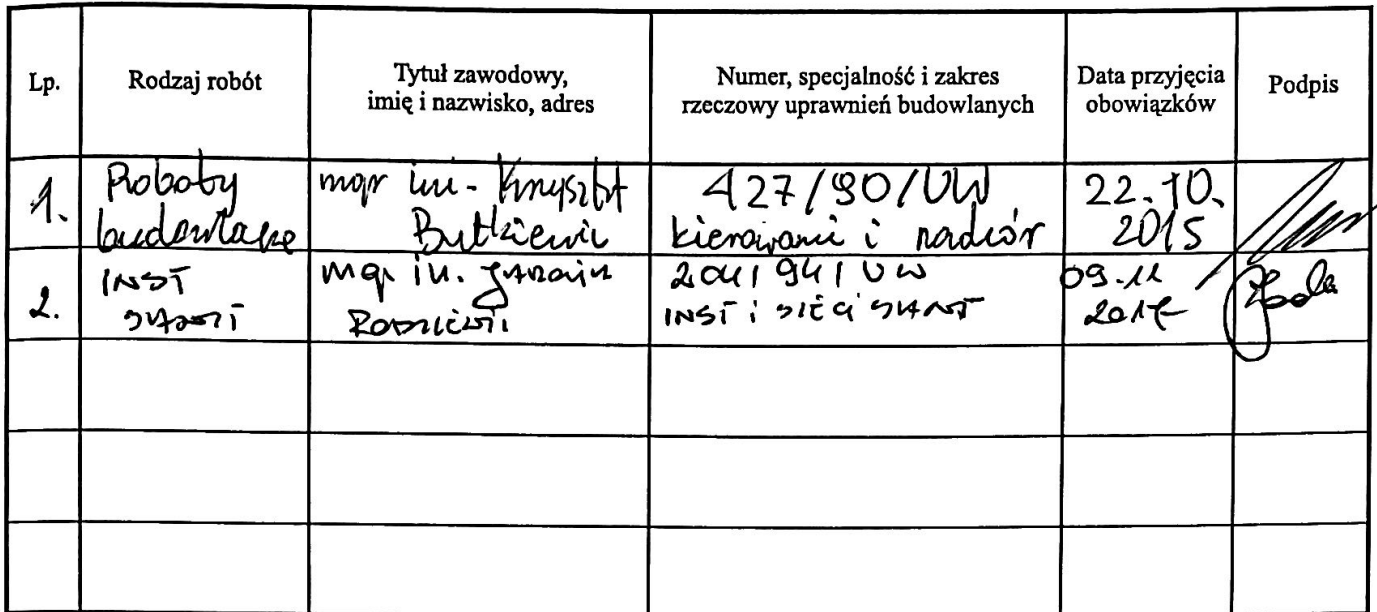 Lp.
Rodzaj robót
Tytuł zawodowy,
imię i nazwisko, adres
Numer, specjalność i zakres
rzeczowy uprawnień budowlanych
Data przyjęcia
obowiązków
Podpis
1.
Roboty
budowlane
mgr inż.
Butkiewicz
427/90/UW
kierowanie i nadzór
22.10.
2015
2.
INST
mgr in.
204/94/UW
INST i SIECI SANIT
09.11